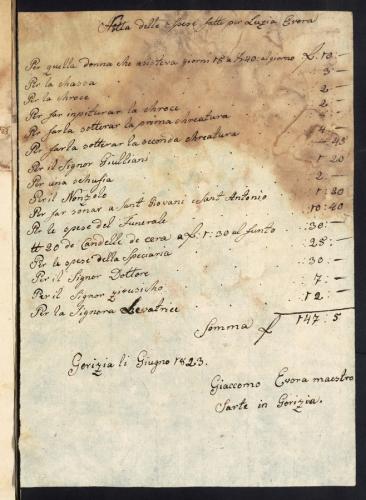 Notta delle Spese fatte per Luzia Evora
Per quella donna che asisteva giorni 15 a £:40: al giorno £. 10:
Per la chassa 3:
Per la chroce 2:
Per far inpiturar la chroce 2:
Per farla sotterar la prima chreatura 4:
Per farla sotterar la seconda chreatura :45
Per il Signor Giulliani 1:20
Per una schufia 2:
Per il Nonzolo 1:20
Per far sonar a Sant Giovani e Sant Antonio 10:40
Per le spese del Funerale 30:
℔ 20 de Candelle de cera a £:1:30 al funto 25:
Per le spese della Speciaria 30:
Per il Signor Dottore 7:
Per il Signor
Per la Signora Levatrice 12:
Somma £ 147:5
Gorizia li Giugno 1823.
Giaccomo Evora maestro
Sarte in Gorizia.